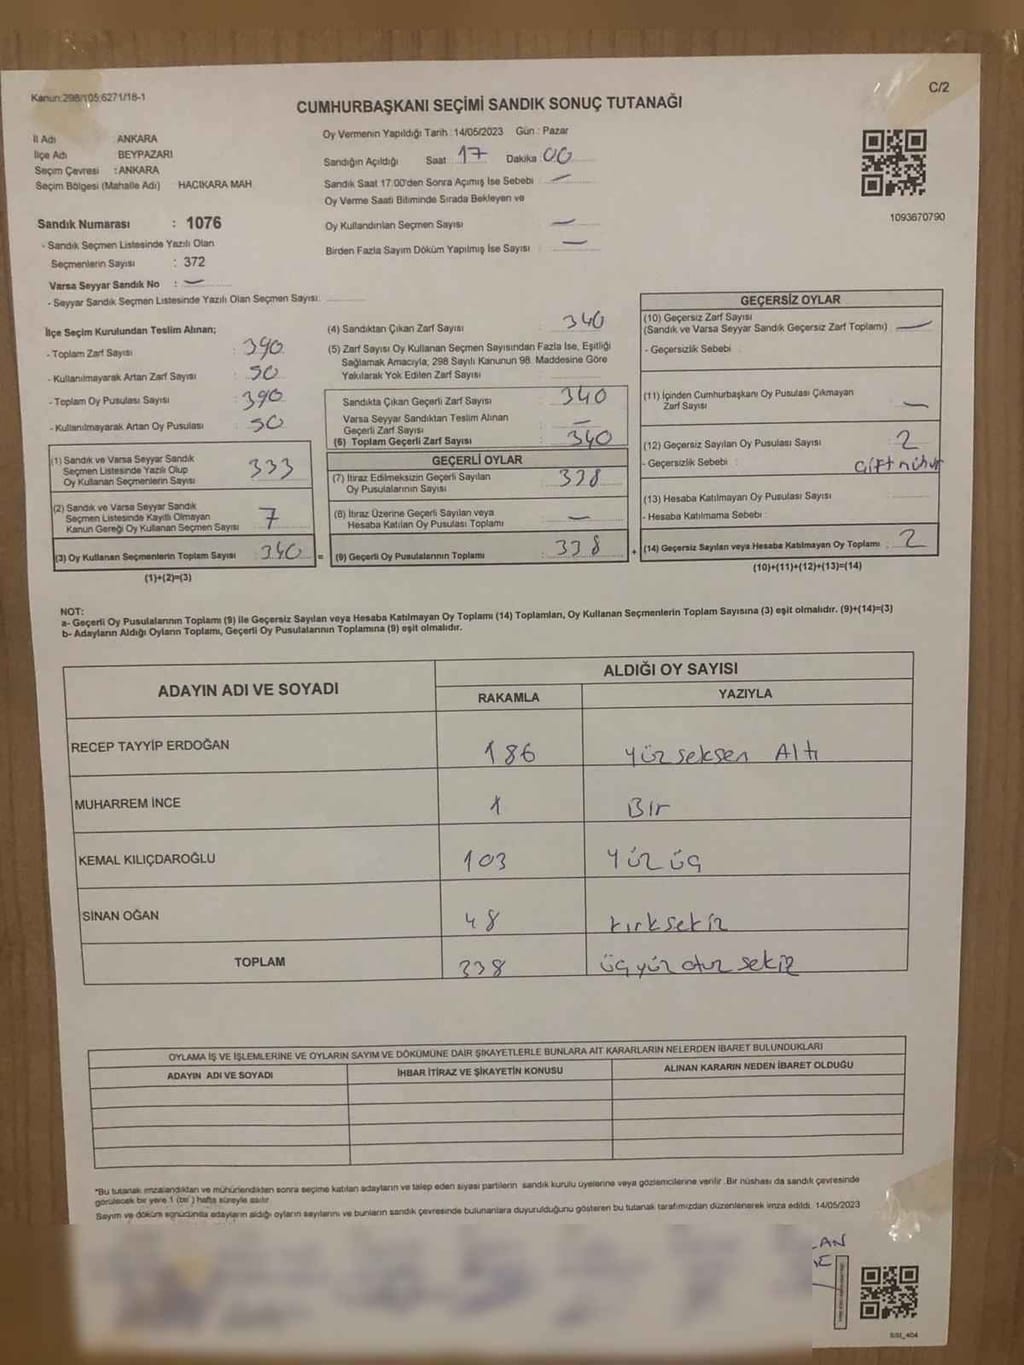 Kanun:298/105;6271/18-1
C/2
CUMHURBAŞKANI SEÇİMİ SANDIK SONUÇ TUTANAĞI
İl Adı ANKARA
İlçe Adı BEYPAZARI
Seçim Çevresi : ANKARA
Seçim Bölgesi (Mahalle Adı) HACIKARA MAH
Oy Vermenin Yapıldığı Tarih : 14/05/2023 Gün : Pazar
Sandığın Açıldığı Saat 17 Dakika 00
Sandık Saat 17.00'den Sonra Açımış İse Sebebi —
Oy Verme Saati Bitiminde Sırada Bekleyen ve
Oy Kullandırılan Seçmen Sayısı —
Birden Fazla Sayım Döküm Yapılmış İse Sayısı —
1093670790
Sandık Numarası : 1076
- Sandık Seçmen Listesinde Yazılı Olan
Seçmenlerin Sayısı : 372
Varsa Seyyar Sandık No : —
- Seyyar Sandık Seçmen Listesinde Yazılı Olan Seçmen Sayısı:
İlçe Seçim Kurulundan Teslim Alınan;
- Toplam Zarf Sayısı : 390
- Kullanılmayarak Artan Zarf Sayısı : 50
- Toplam Oy Pusulası Sayısı : 390
- Kullanılmayarak Artan Oy Pusulası : 50
(1) Sandık ve Varsa Seyyar Sandık
Seçmen Listesinde Yazılı Olup
Oy Kullanan Seçmenlerin Sayısı : 333
(2) Sandık ve Varsa Seyyar Sandık
Seçmen Listesinde Kayıtlı Olmayan
Kanun Gereği Oy Kullanan Seçmen Sayısı : 7
(3) Oy Kullanan Seçmenlerin Toplam Sayısı : 340
(1)+(2)=(3)
(4) Sandıktan Çıkan Zarf Sayısı : 340
(5) Zarf Sayısı Oy Kullanan Seçmen Sayısından Fazla İse, Eşitliği
Sağlamak Amacıyla; 298 Sayılı Kanunun 98. Maddesine Göre
Yakılarak Yok Edilen Zarf Sayısı
Sandıkta Çıkan Geçerli Zarf Sayısı : 340
Varsa Seyyar Sandıktan Teslim Alınan
Geçerli Zarf Sayısı : —
(6) Toplam Geçerli Zarf Sayısı : 340
GEÇERLİ OYLAR
(7) İtiraz Edilmeksizin Geçerli Sayılan
Oy Pusulalarının Sayısı : 338
(8) İtiraz Üzerine Geçerli Sayılan veya
Hesaba Katılan Oy Pusulası Toplamı : —
= (9) Geçerli Oy Pusulalarının Toplamı : 338 +
GEÇERSİZ OYLAR
(10) Geçersiz Zarf Sayısı
(Sandık ve Varsa Seyyar Sandık Geçersiz Zarf Toplamı) : —
- Geçersizlik Sebebi :
(11) İçinden Cumhurbaşkanı Oy Pusulası Çıkmayan
Zarf Sayısı —
(12) Geçersiz Sayılan Oy Pusulası Sayısı : 2
- Geçersizlik Sebebi : Çift mühür
(13) Hesaba Katılmayan Oy Pusulası Sayısı :
- Hesaba Katılmama Sebebi :
(14) Geçersiz Sayılan veya Hesaba Katılmayan Oy Toplamı : 2
(10)+(11)+(12)+(13)=(14)
NOT:
a- Geçerli Oy Pusulalarının Toplamı (9) ile Geçersiz Sayılan veya Hesaba Katılmayan Oy Toplamı (14) Toplamları, Oy Kullanan Seçmenlerin Toplam Sayısına (3) eşit olmalıdır. (9)+(14)=(3)
b- Adayların Aldığı Oyların Toplamı, Geçerli Oy Pusulalarının Toplamına (9) eşit olmalıdır.
ADAYIN ADI VE SOYADI ALDIĞI OY SAYISI
RAKAMLA YAZIYLA
RECEP TAYYİP ERDOĞAN 186 Yüz seksen Altı
MUHARREM İNCE 1 Bir
KEMAL KILIÇDAROĞLU 103 Yüz üç
SİNAN OĞAN 48 kırk sekiz
TOPLAM 338 üç yüz otuz sekiz
OYLAMA İŞ VE İŞLEMLERİNE VE OYLARIN SAYIM VE DÖKÜMÜNE DAİR ŞİKAYETLERLE BUNLARA AİT KARARLARIN NELERDEN İBARET BULUNDUKLARI
ADAYIN ADI VE SOYADI İHBAR İTİRAZ VE ŞİKAYETİN KONUSU ALINAN KARARIN NEDEN İBARET OLDUĞU
*Bu tutanak imzalandıktan ve mühürlendikten sonra seçime katılan adayların ve talep eden siyasi partilerin sandık kurulu üyelerine veya gözlemcilerine verilir. Bir nüshası da sandık çevresinde
görülecek bir yere 1 (bir ) hafta süreyle asılır.
Sayım ve döküm sonucunda adayların aldığı oyların sayılarını ve bunların sandık çevresinde bulunanlara duyurulduğunu gösteren bu tutanak tarafımızdan düzenlenerek imza edildi. 14/05/2023